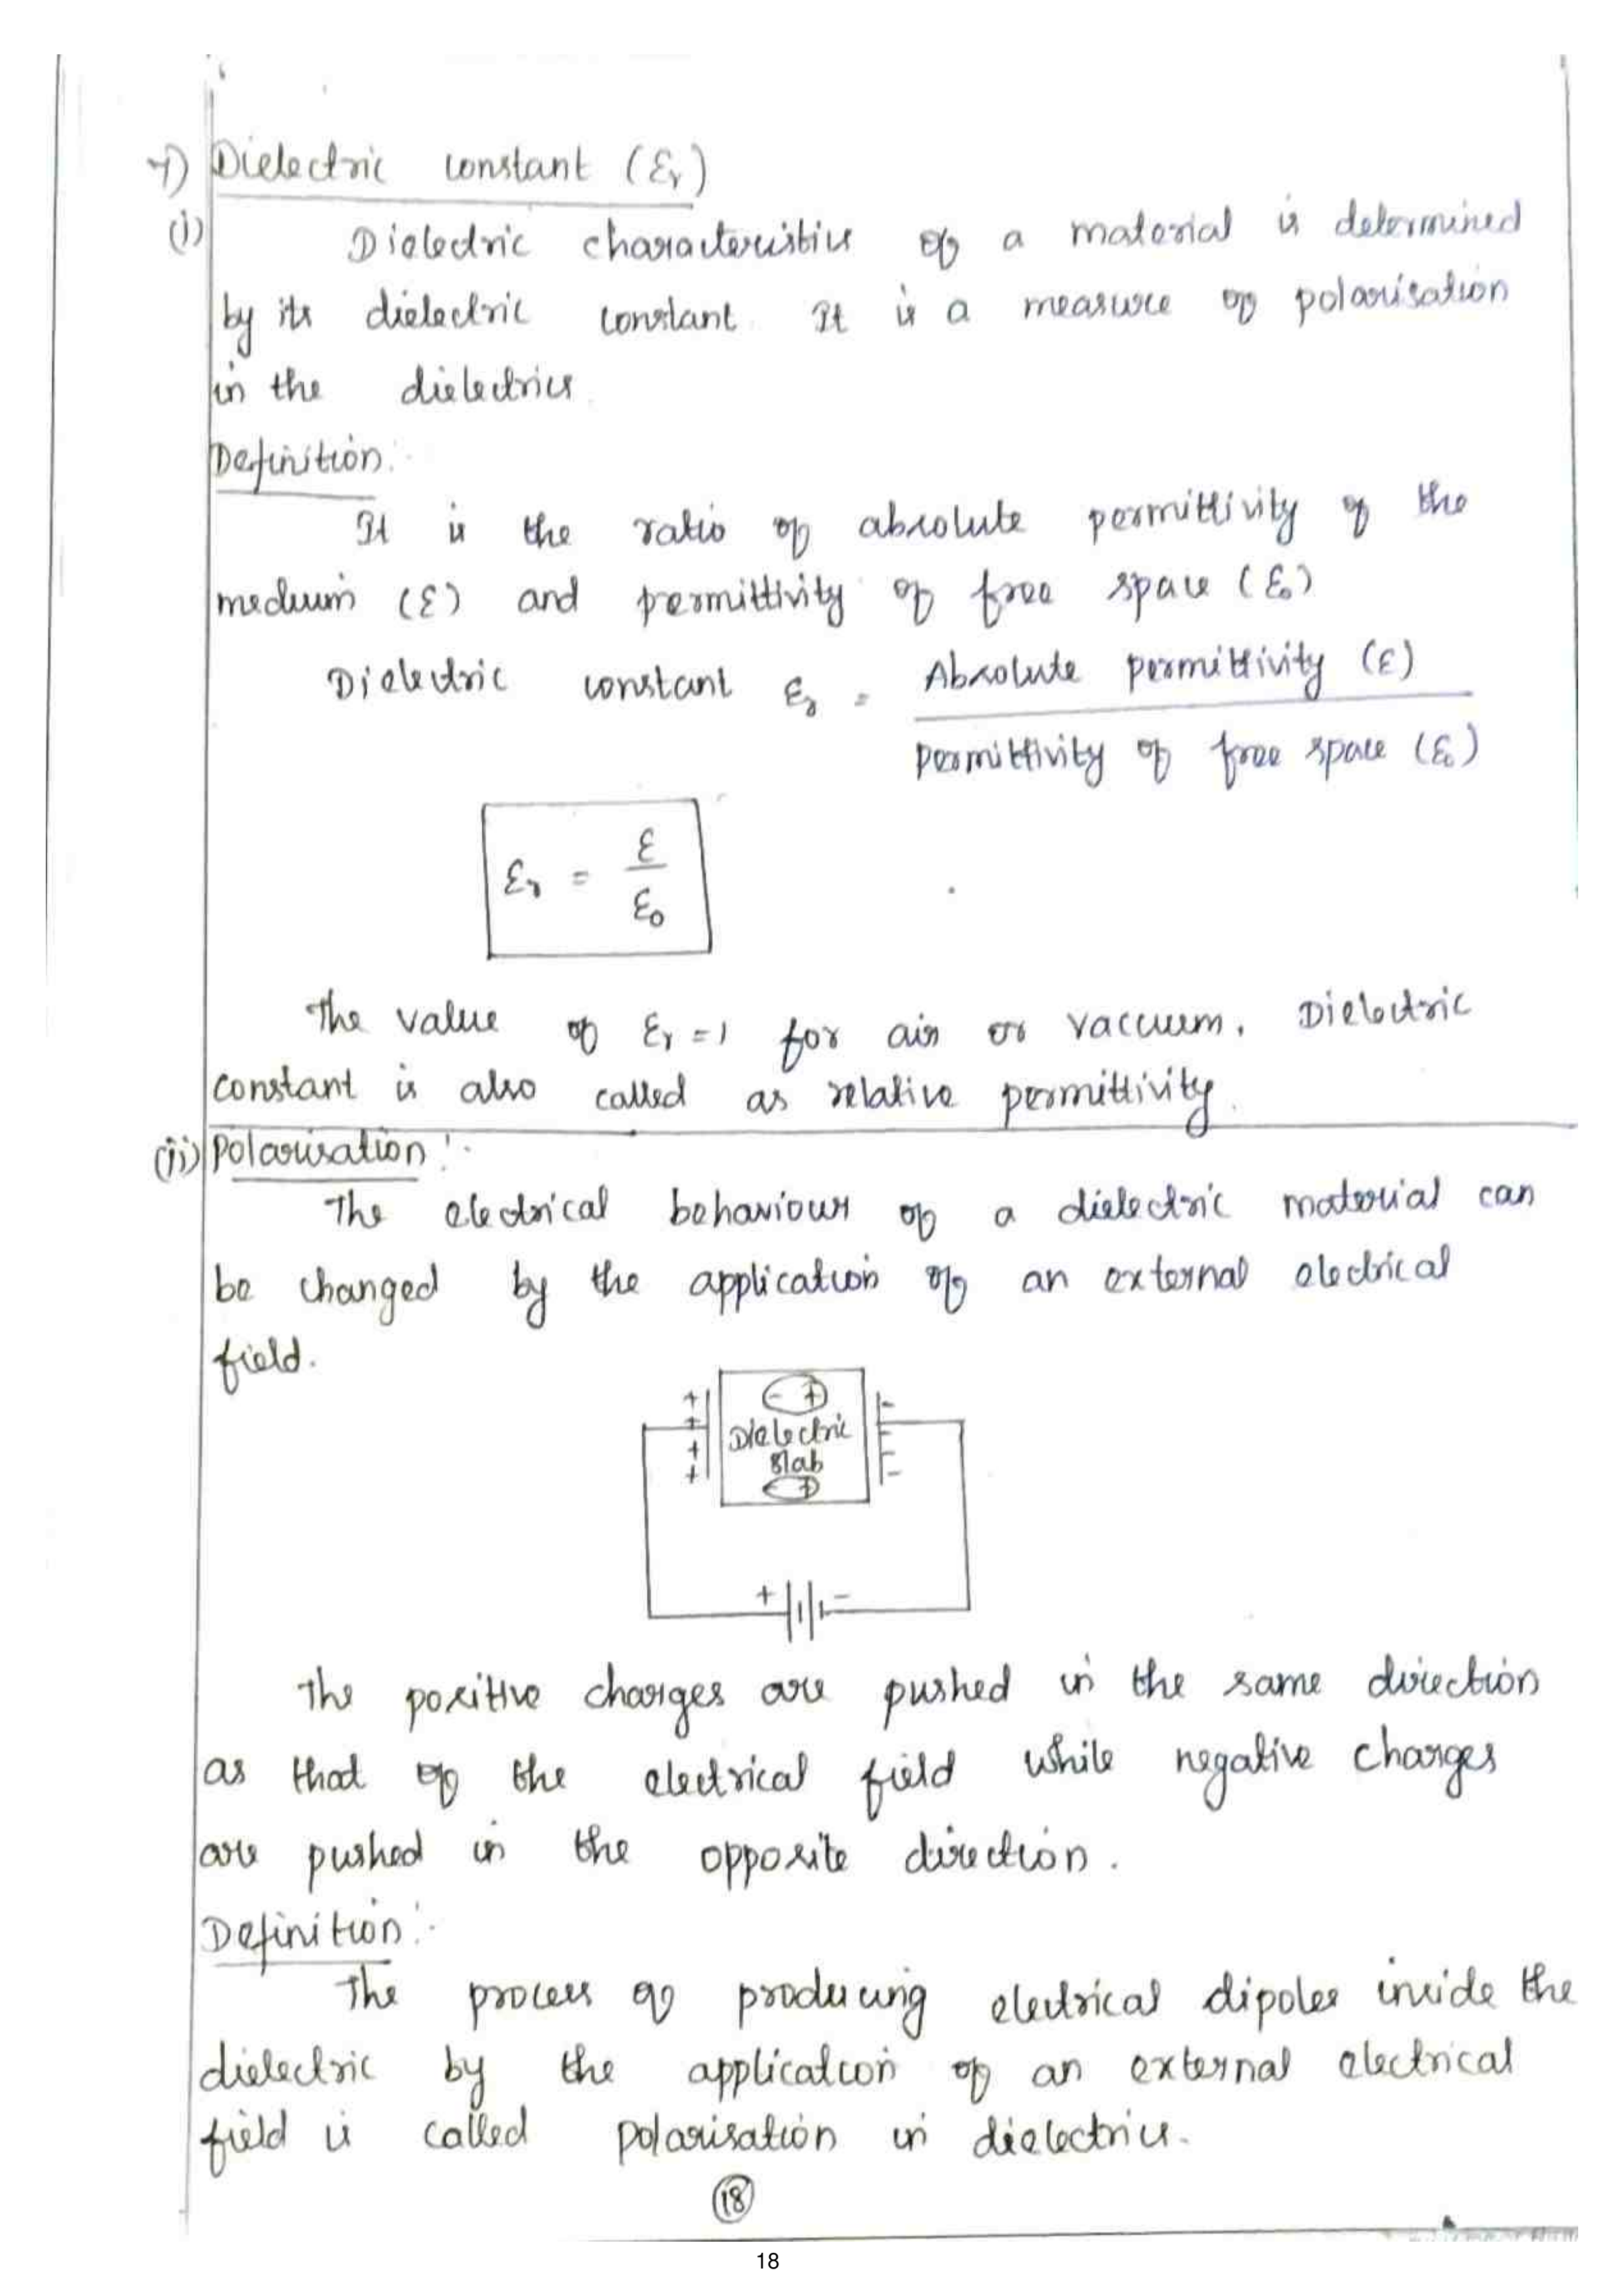 7) Dielectric constant (εr)
(i) Dielectric characteristics of a material is determined
by its dielectric constant. It is a measure of polarisation
in the dielectrics.
Definition:-
It is the ratio of absolute permittivity of the
medium (ε) and permittivity of free space (ε0)
Dielectric constant εr = Absolute permittivity (ε)
permittivity of free space (ε0)
εr = ε
ε0
The value of εr = 1 for air or vaccuum. Dielectric
constant is also called as relative permittivity.
(ii) Polarisation:-
The electrical behaviour of a dielectric material can
be changed by the application of an external electrical
field.
- +
+ -
+ Dielectric -
+ slab -
+ - + -
+ -
The positive charges are pushed in the same direction
as that of the electrical field while negative charges
are pushed in the opposite direction.
Definition:-
The process of producing electrical dipoles inside the
dielectric by the application of an external electrical
field is called polarisation in dielectrics.
18
18